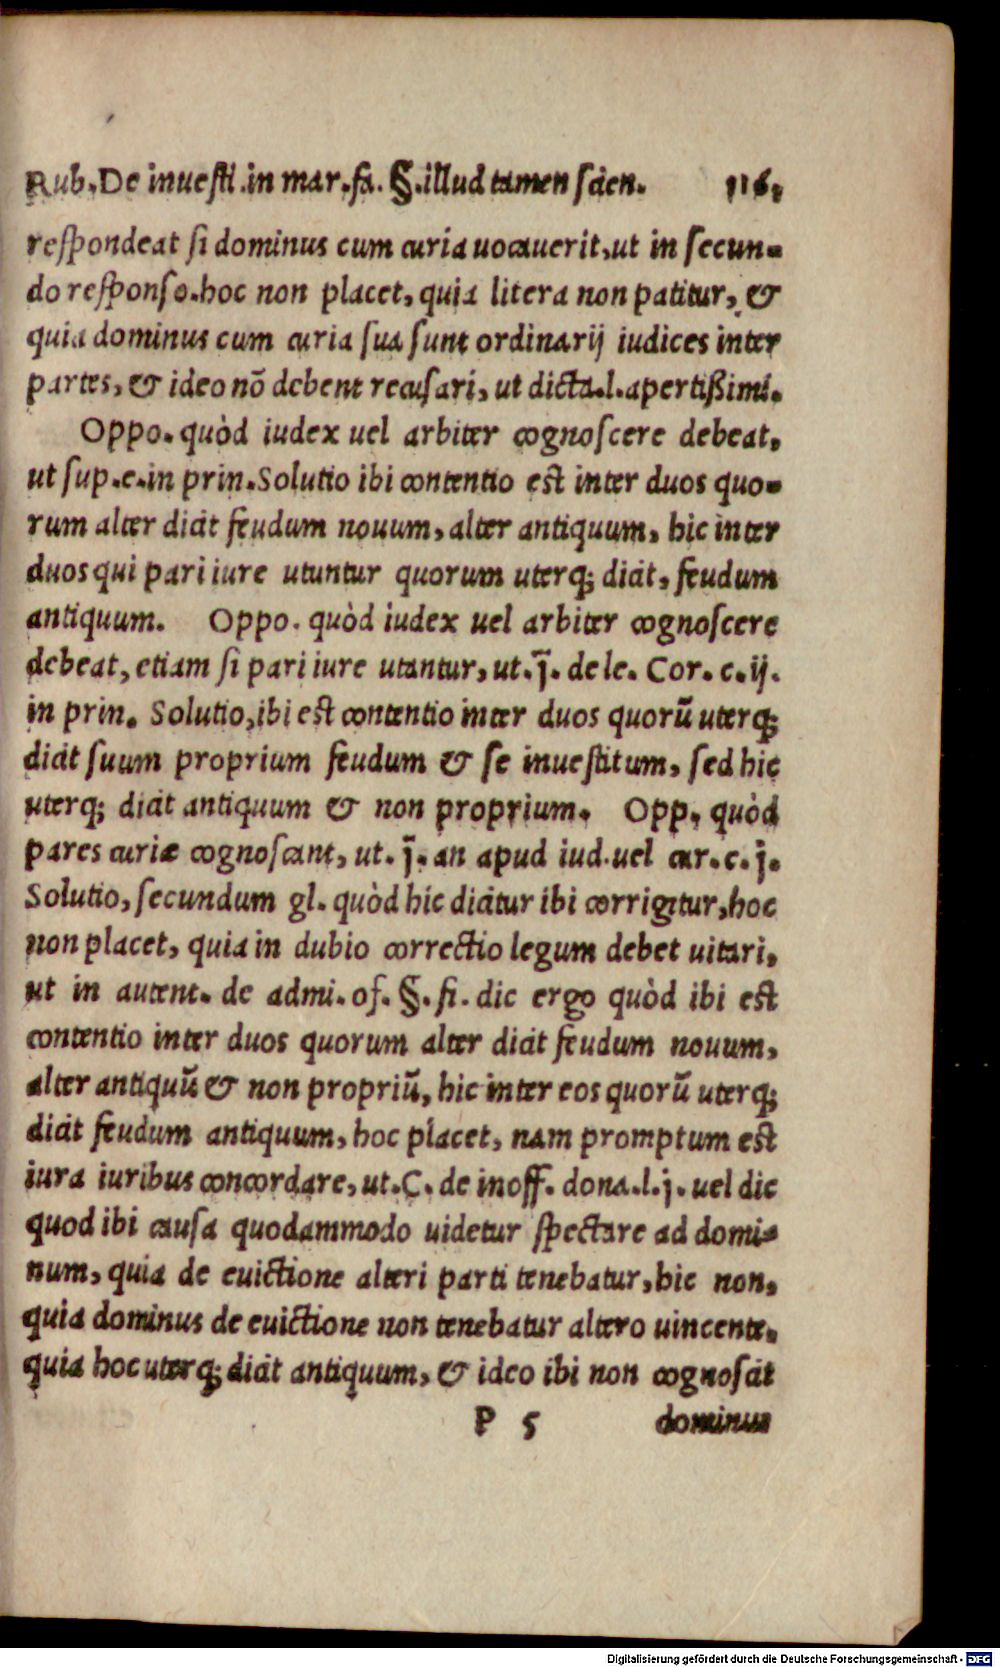 Rub. De inuesti. in mar. fa. §. illud tamen scien. 116.
respondeat si dominus cum curia uocauerit, ut in secun-
do responso. hoc non placet, quia litera non patitur, &
quia dominus cum curia sua sunt ordinarij iudices inter
partes, & ideo nõ debent recusari, ut dicta. l. apertißimi.
Oppo. quòd iudex uel arbiter cognoscere debeat,
ut sup. e. in prin. Solutio ibi contentio est inter duos quo-
rum alter dicit feudum nouum, alter antiquum, hic inter
duos qui pari iure utuntur quorum uterq; dicit, feudum
antiquum. Oppo. quòd iudex uel arbiter cognoscere
debeat, etiam si pari iure utantur, ut. j̃. de le. Cor. c. ij.
in prin. Solutio, ibi est contentio inter duos quorũ uterq;
dicit suum proprium feudum & se inuestitum, sed hic
uterq; dicit antiquum & non proprium. Opp. quòd
pares curiæ cognoscant, ut. j̃. an apud iud. uel cur. c. j̃.
Solutio, secundum gl. quòd hic dicitur ibi corrigitur, hoc
non placet, quia in dubio correctio legum debet uitari,
ut in autent. de admi. of. §. fi. dic ergo quòd ibi est
contentio inter duos quorum alter dicit feudum nouum,
alter antiquũ & non propriũ, hic inter eos quorũ uterq;
dicit feudum antiquum, hoc placet, nam promptum est
iura iuribus concordare, ut. C. de inoff. dona. l. j. uel dic
quod ibi causa quodammodo uidetur spectare ad domi-
num, quia de euictione alteri parti tenebatur, hic non,
quia dominus de euictione non tenebatur altero uincente.
quia hoc uterq; dicit antiquum, & ideo ibi non cognoscit
P 5 dominus
Digitalisierung gefördert durch die Deutsche Forschungsgemeinschaft - DFG